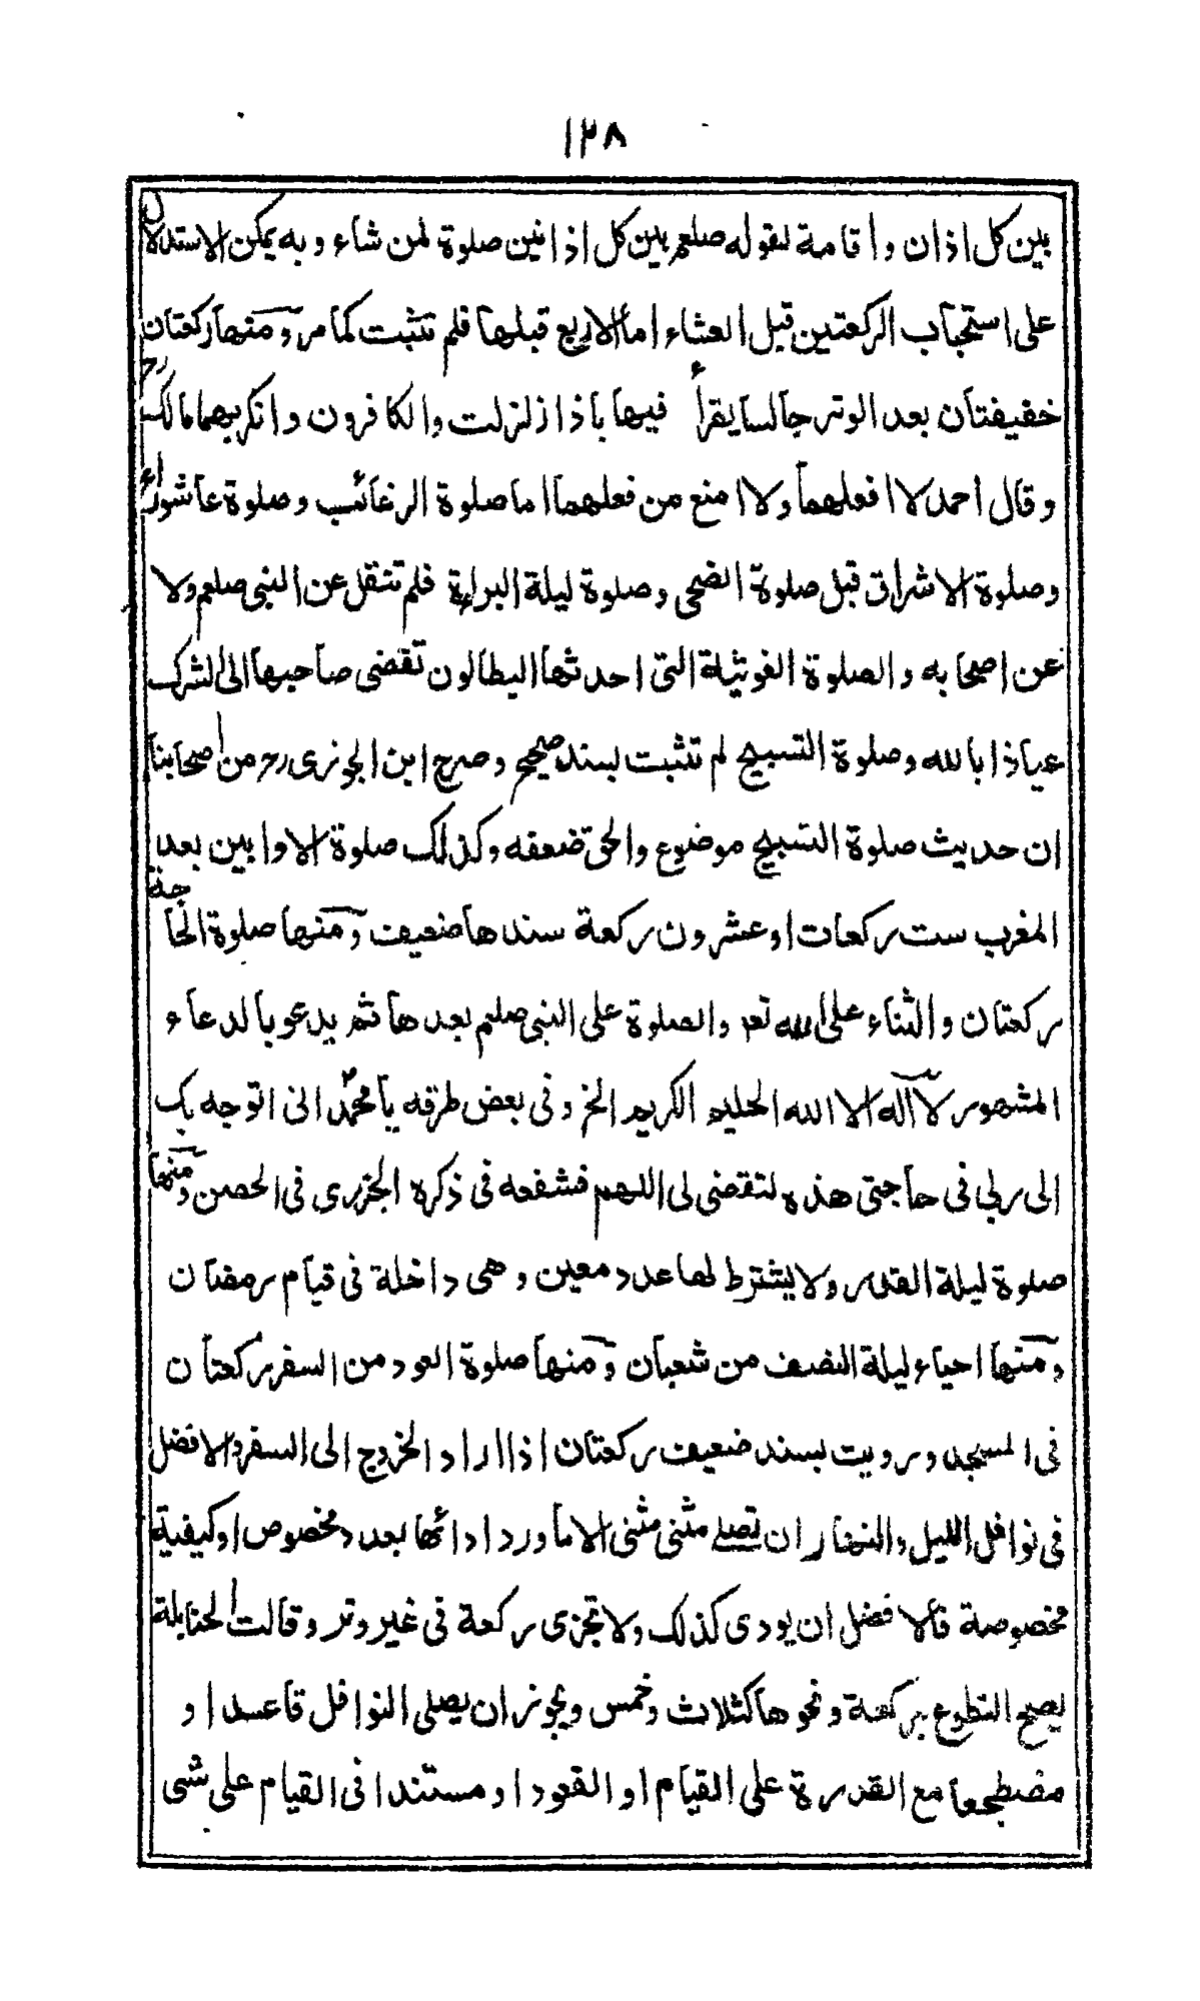 ١٢٨
بين كل اذان واقامة لقوله صلعم بين كل اذانين صلوة لمن شاء وبه يمكن الاستدلال
على استحباب الركعتين قبل العشاء اما الاربع قبلها فلم تثبت كما مر ومنها ركعتان
خفيفتان بعد الوتر جالسا يقرأ فيها باذا زلزلت والكافرون وانكر بهما مالك رح
وقال احمد لا افعلهما ولا امنع من فعلهما اما صلوة الرغائب وصلوة عاشوراء
وصلوة الاشراق قبل صلوة الضحى وصلوة ليلة البراءة فلم تنقل عن النبى صلعم ولا
عن اصحابه والصلوة الغوثية التى احدثها البطالون تقضى صاحبها الى الشرك
عياذا بالله وصلوة التسبيح لم تثبت بسند صحيح وصرح ابن الجوزى رح من اصحابنا
ان حديث صلوة التسبيح موضوع والحق ضعفه وكذلك صلوة الاوابين بعد
المغرب ست ركعات او عشرون ركعة سندها ضعيف ومنها صلوة الحاجة
ركعتان والثناء على الله تعـ والصلوة على النبى صلعم بعدها ثم يدعو بالدعاء
المشهور لا آله الا الله الحليم الكريم الخ وفى بعض طرقه يا محمد انى اتوجه بك
الى ربى فى حاجتى هذه لتقضى لى اللهم فشفعه فى ذكره الجزرى فى الحصن ومنها
صلوة ليلة القدر ولا يشترط لها عدد معين وهى داخلة فى قيام رمضان
ومنها احياء ليلة النصف من شعبان ومنها صلوة العود من السفر ركعتان
فى المسجد ورويت بسند ضعيف ركعتان اذا اراد الخروج الى السفر والافضل
فى نوافل الليل والنهار ان تصلے مثنى مثنى الا ما ورد ادائها بعدد مخصوص او كيفية
مخصوصة فالافضل ان يودى كذلك ولا تجزى ركعة فى غير وتر وقالت الحنابلة
يصح التطوع بركعة ونحوها كثلاث وخمس ويجوز ان يصلى النوافل قاعدا او
مضطجعا مع القدرة على القيام او القعود او مستندا فى القيام على شى